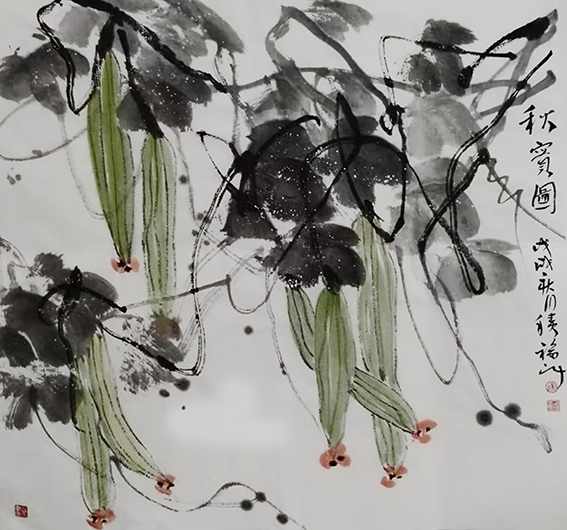 秋實圖
戊戌秋月積福